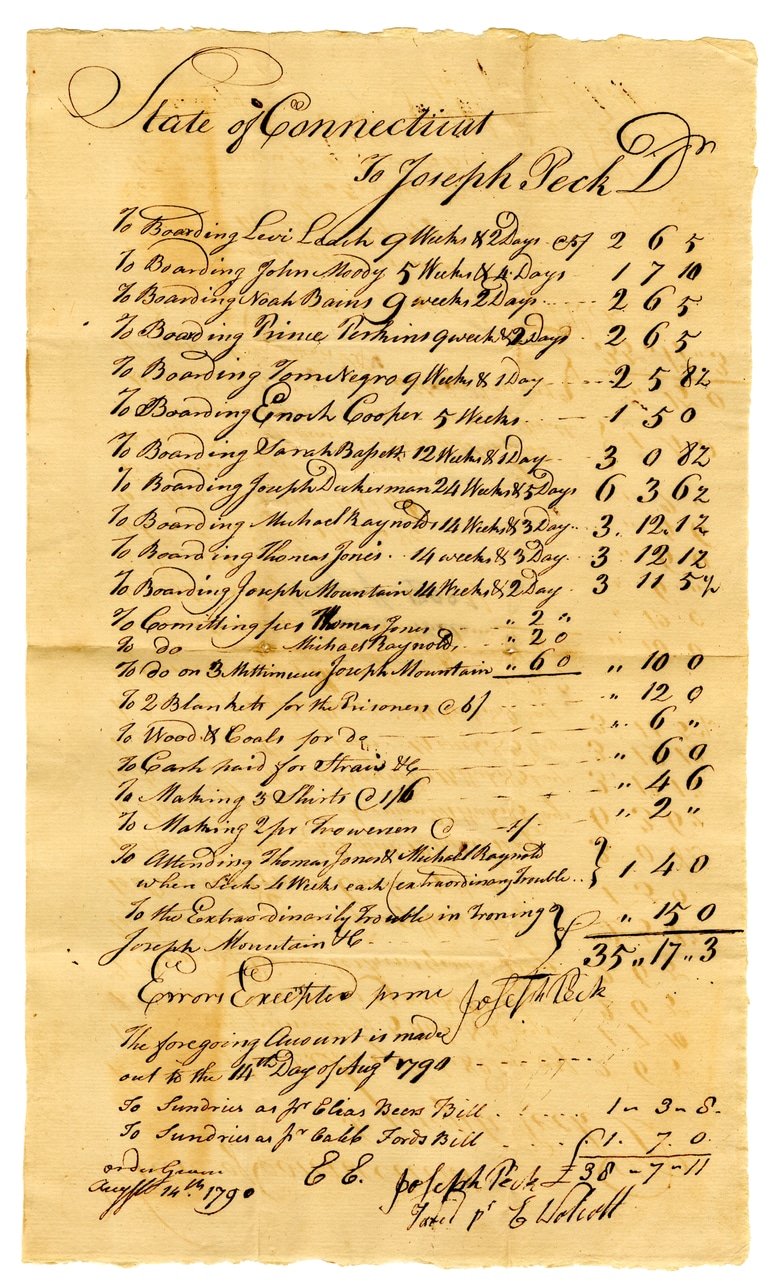 State of Connecticut
To Joseph Peck Dr
To Boarding Levi Leach 9 Weeks & 2 Days @5/ 2 6 5
To Boarding John Moody 5 Weeks & 4 Days 1 7 10
To Boarding Noah Barns 9 weeks 2 Days 2 6 5
To Boarding Prince Perkins 9 week & 2 Days 2 6 5
To Boarding Tom Negro 9 Weeks & 1 Day 2 5 8½
To Boarding Enoch Cooper 5 Weeks 1 5 0
To Boarding Sarah Bassett 12 Weeks & 1 Day 3 0 8½
To Boarding Joseph Dickerman 24 Weeks & 5 Days 6 3 6½
To Boarding Michael Raynolds 14 Weeks & 3 Day 3. 12. 1½
To Boarding Thomas Jones 14 weeks & 3 Day 3 12 1½
To Boarding Joseph Mountain 14 Weeks & 2 Day 3 11 5½
To Comitting fees Thomas Jones " 2 "
To do Michael Raynolds " 2 0
To do on 3 Mittimuss Joseph Mountain " 6 0 " 10 0
To 2 Blankets for the Prisoners @ 6/ " 12 0
To Wood & Coals for do " 6 "
To Cash paid for Straw &c " 6 0
To Making 3 Shirts @ 1/6 " 4 6
To Making 2 pr Trowersen @ 1/ " 2 "
To Attending Thomas Jones & Michael Raynold
when Sick 4 Weeks each (extraordinary Trouble 1 4 0
To the Extraordinarily Trouble in Ironing " 15 0
Joseph Mountain &c £ 35 " 17 " 3
Errors Excepted prme Joseph Peck
The foregoing Account is made
out to the 14th Day of Augt 1790
To Sundries as pr Elias Beers Bill 1 - 3 - 8
To Sundries as pr Caleb Fords Bill 1. 7. 0
order Given E E. Joseph Peck £ 38 - 7 - 11
Augst 14th 1790
Taxed pr E Wolcott